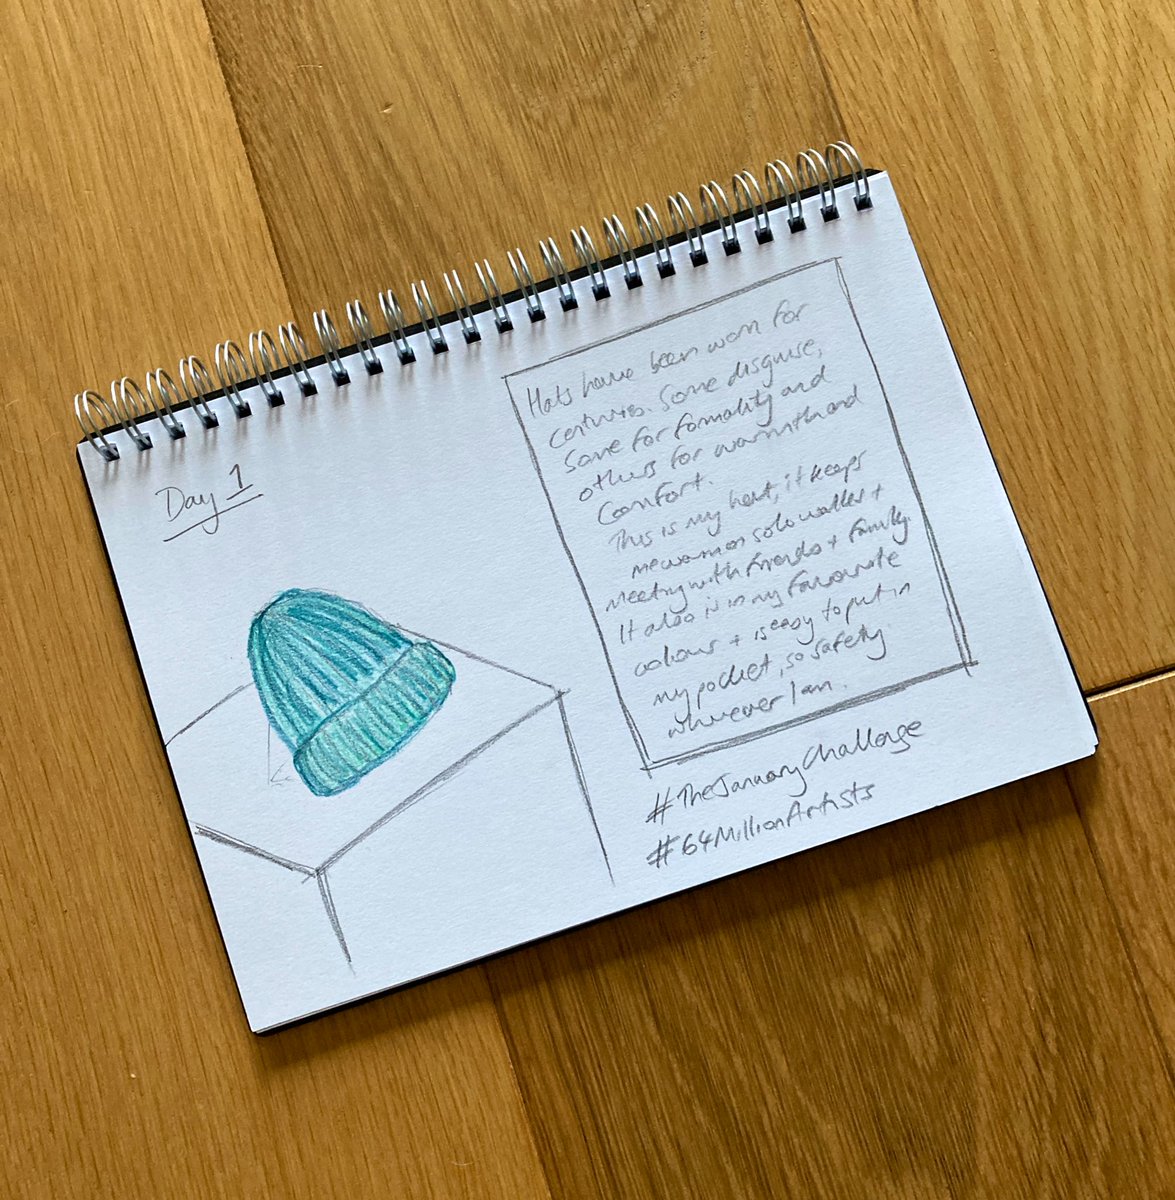 Day 1
Hats have been worn for
centuries. Some disguise,
some for formality and
others for warmth and
comfort.
This is my hat, it keeps
me warm on solo walks +
meeting with friends + family.
It also is in my favourite
colour + is easy to put in
my pocket, so safely
wherever I am.
#TheJanuaryChallenge
#64MillionArtists